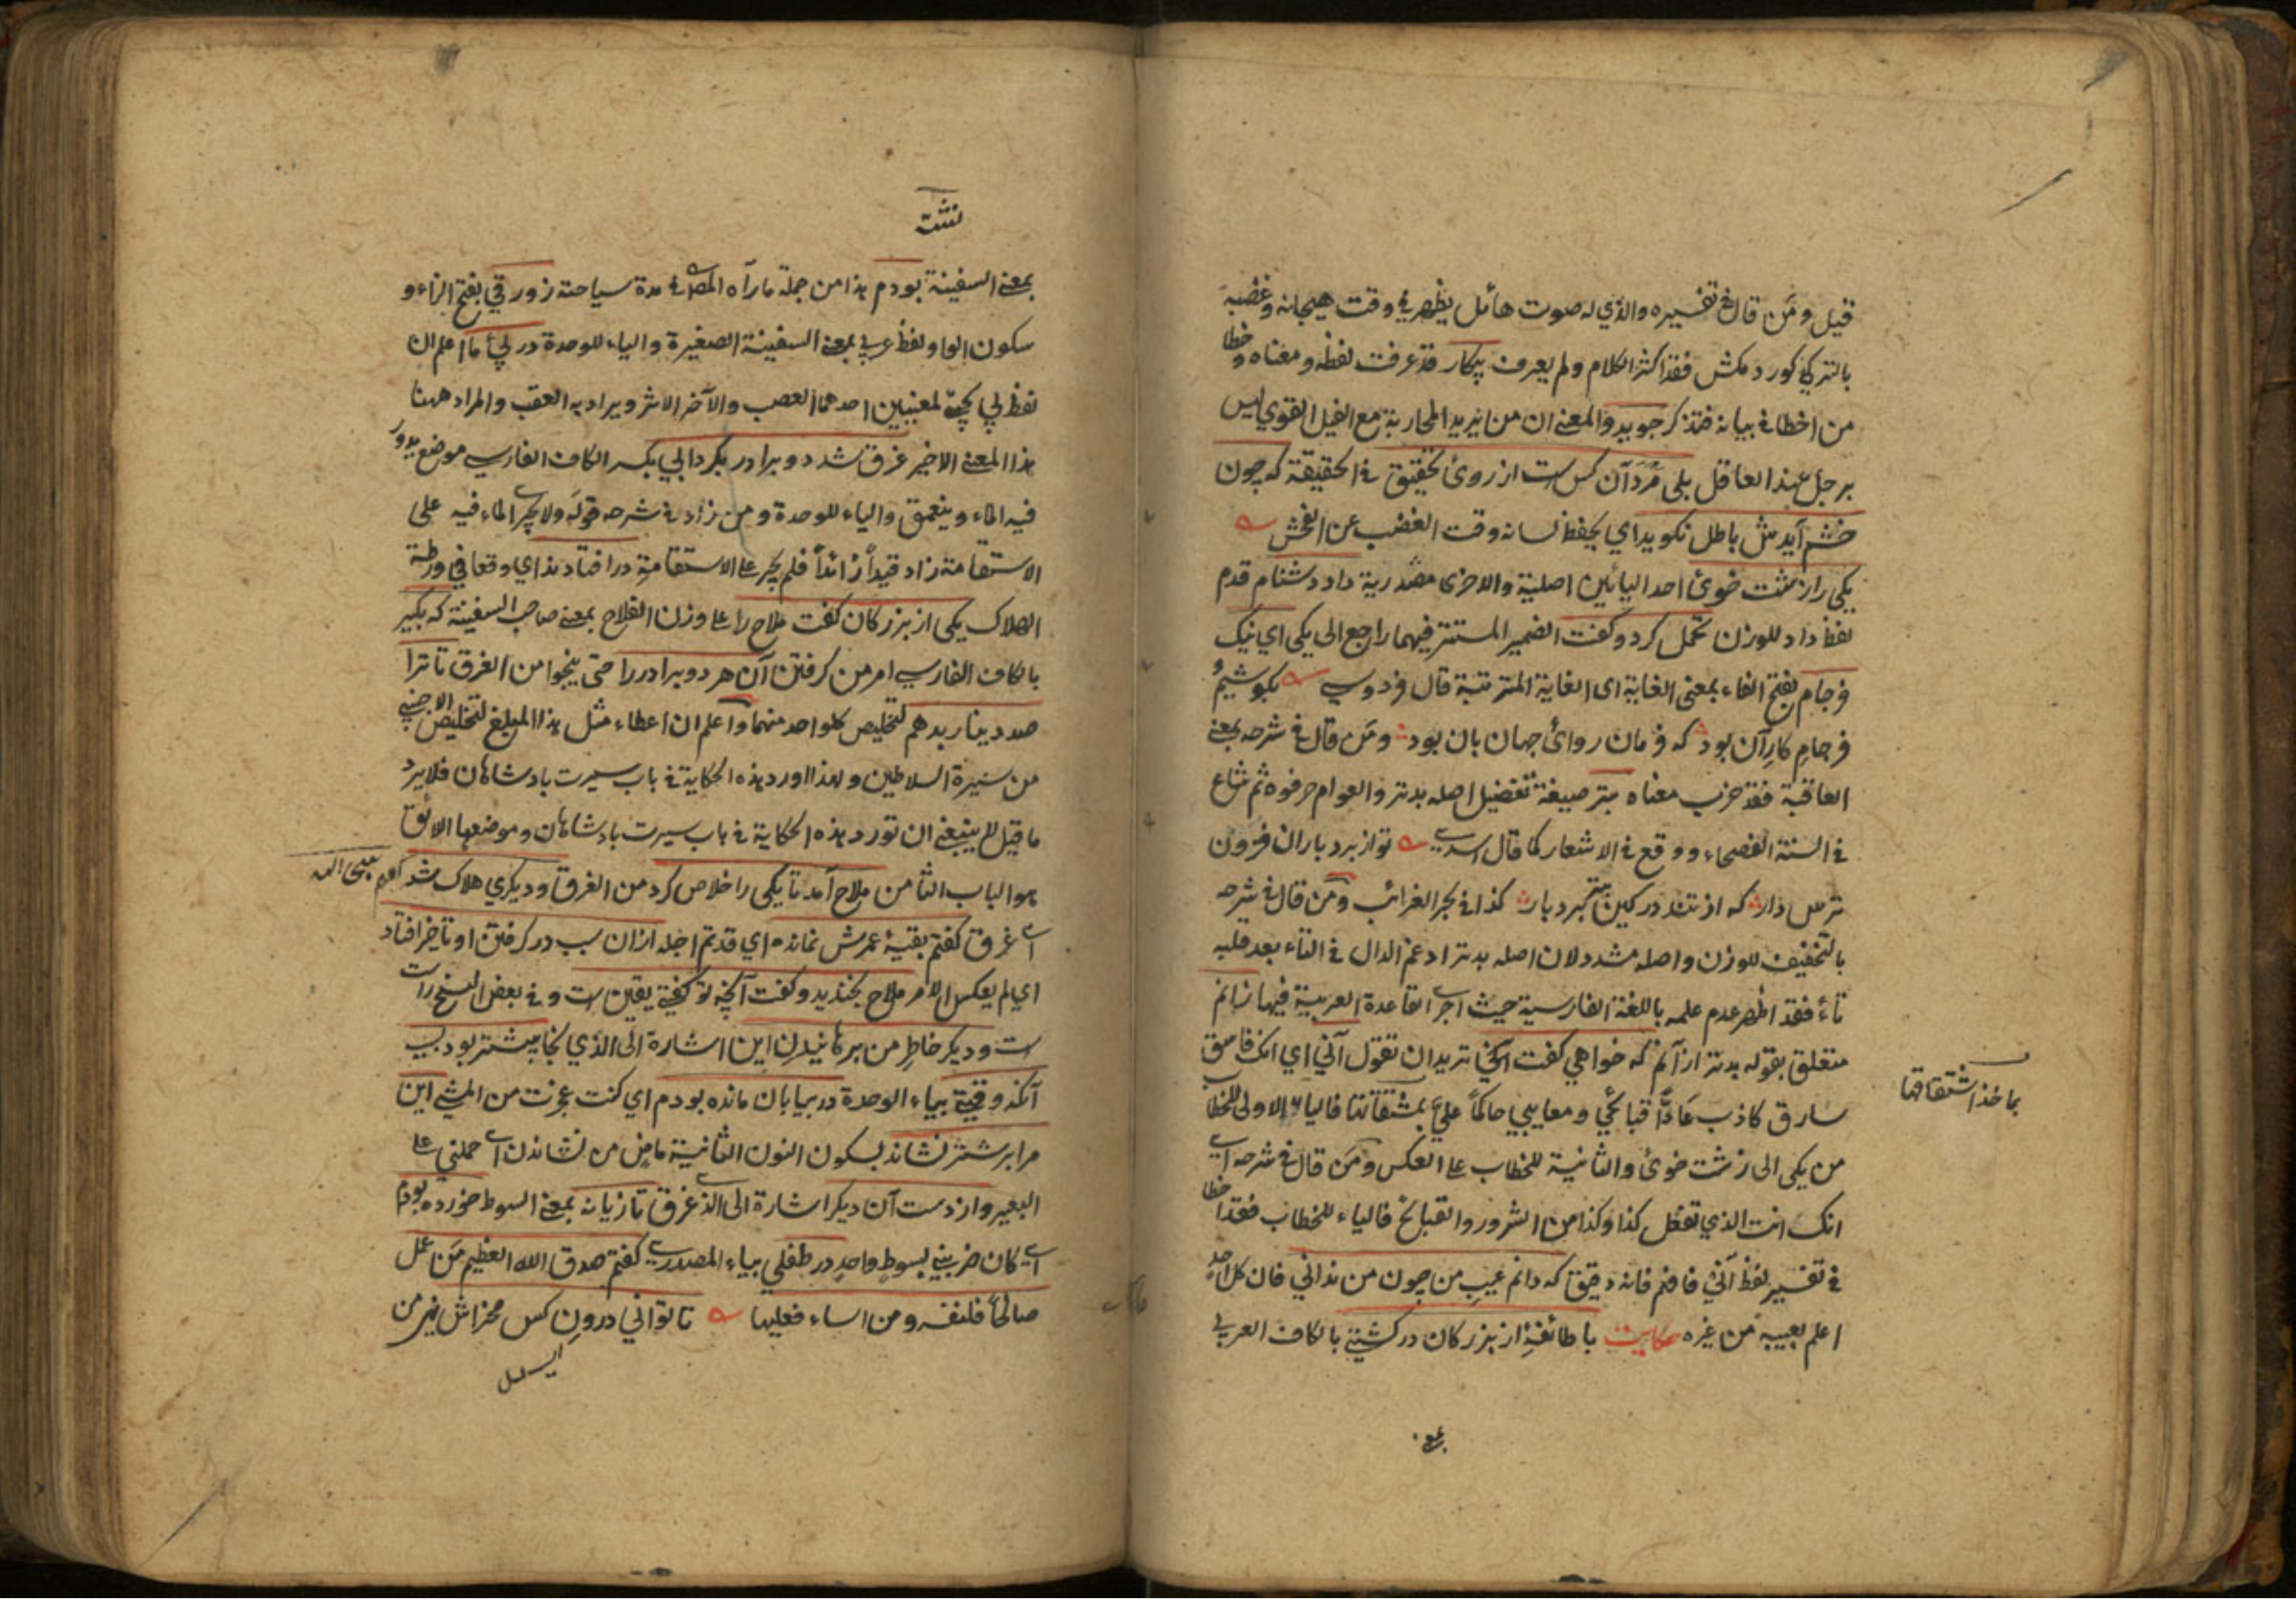 قيل ومن قال في تفسيره والذي له صوت هائل يظهر في وقت هيجانه وغضبه
بالتركي كورد مكش فقد اكثر الكلام ولم يعرف پيكار قد عرفت لفظه ومعناه وخطا
من اخطا في بيانه فتذكر جويد والمعنى ان من يريد المحاربة مع الفيل القوي ليس
برجل عند العاقل بلى مرد آن كس است از روئ تحقيق في الحقيقة كه چون
خشم آيدش باطل نكويد اي يحفظ لسانه وقت الغضب عن الفحش
يكى را زشت خوئ احد اليائين اصلية والاخرى مصدرية داد دشنام قدم
لفظ داد للوزن تحمل كرد وكفت الضمير المستتر فيهما راجع الى يكى اي نيك
فرجام بفتح الفاء بمعنى الغاية اى الغاية المترتبة قال فردوسي بكوشيم
فرجام كار آن بود كه فرمان روائ جهان بان بود ومن قال في شرحه بمعنى
العاقبة فقد خرب معناه بتر صيغة تفضيل اصله بدتر والعوام حرفوه ثم شاع
في السنة الفصحاء ووقع في الاشعار كما قال اسدي تو از بردباران فزون
ترس دار كه از تند در كين بتر بردبار كذا في بحر الغرائب ومن قال في شرحه
بالتخفيف للوزن واصله مشدد لان اصله بدتر ادغم الدال في التاء بعد قلبه
تاء فقد اظهر عدم علمه باللغة الفارسية حيث اجرى القاعدة العربية فيها زانم
متعلق بقوله بدتر ازآنم كه خواهي كفت آنخ تريد ان تقول آني اي انك فاسق
سارق كاذب عادّاً قبائحي ومعايبي حاكماً عليّ بمشتقاتها فالياء الاولى للخطاب
بماخذ اشتقاقها
من يكى الى زشت خوئ والثانية للخطاب على العكس ومن قال في شرحه اي
انك انت الذي تفعل كذا وكذا من الشرور والقبائح فالياء للخطاب فقد اخطا
في تفسير لفظ آني فافهم فانه دقيق كه دانم عيب من چون من نداني فان كل احد
اعلم بعيبه من غيره حكايت با طائفة از بزركان در كشتي بالكاف العربي
بمعنى السفينة بودم هذا من جملة ما رآه المص في مدة سياحته زورقي بفتح الزاء و
سكون الواو لفظ عربي بمعنى السفينة الصغيرة والياء للوحدة در پي ما اعلم ان
لفظ پي يجئ لمعنيين احدهما العصب والآخر الاثر ويراد به العقب والمراد ههنا
هذا المعنى الاخير غرق شد دو برادر بكردابي بكسر الكاف الفارسي موضع يدور
فيه الماء ويتعمق والياء للوحدة ومن زاد في شرحه قوله ولا يجري الماء فيه على
الاستقامة زاد قيداً زائداً فلم يجر على الاستقامة در افتادند اي وقعا في ورطة
الهلاك يكى از بزركان كفت ملاح را على وزن الفلاح بمعنى صاحب السفينة كه بكير
بالكاف الفارسي امر من كرفتن آن هر دو برادر را حتى ينجوا من الغرق تا ترا
صد دينار بدهم لتخليص كل واحد منهما واعلم ان اعطاء مثل هذا المبلغ لتخليص الاجنبي
من سيرة السلاطين ولهذا اورد هذه الحكاية في باب سيرت بادشاهان فلا يرد
ما قيل لم ينبغى ان تورد هذه الحكاية في باب سيرت بادشاهان وموضعها الائق
هو الباب الثامن ملاح آمد تا يكى را خلاص كرد من الغرق وديكري هلاك شد
اي غرق كفتم بقيۀ عمرش نمانده اي قد تم اجله ازان سبب در كرفتن او تأخير افتاد
اي لم يعكس الامر ملاح بخنديد وكفت آنچه تو كفتي يقين است وفي بعض النسخ راست
است وديكر خاطر من برهانيدن اين اشارة الى الذي نجا بيشتر بود بسبب
آنكه وقتي بياء الوحدة در بيابان مانده بودم اي كنت عجزت من المشي اين
مرا بر شتر نشاند بسكون النون الثانية ماض من نشاندن اي حملني على
البعير واز دست آن ديكر اشارة الى الذي غرق تازيانه بمعنى السوط خورده بودم
اي كان ضربني بسوط واحد در طفلي بياء المصدري كفتم صدق الله العظيم من عمل
صالحاً فلنفسه ومن اساء فعليها تا تواني درون كس مخراش نهي من